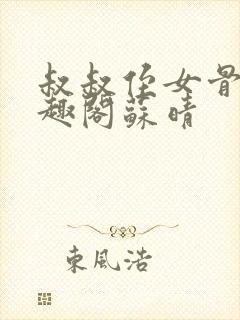 叔叔侄女骨
趣閣蘇晴
東風浩